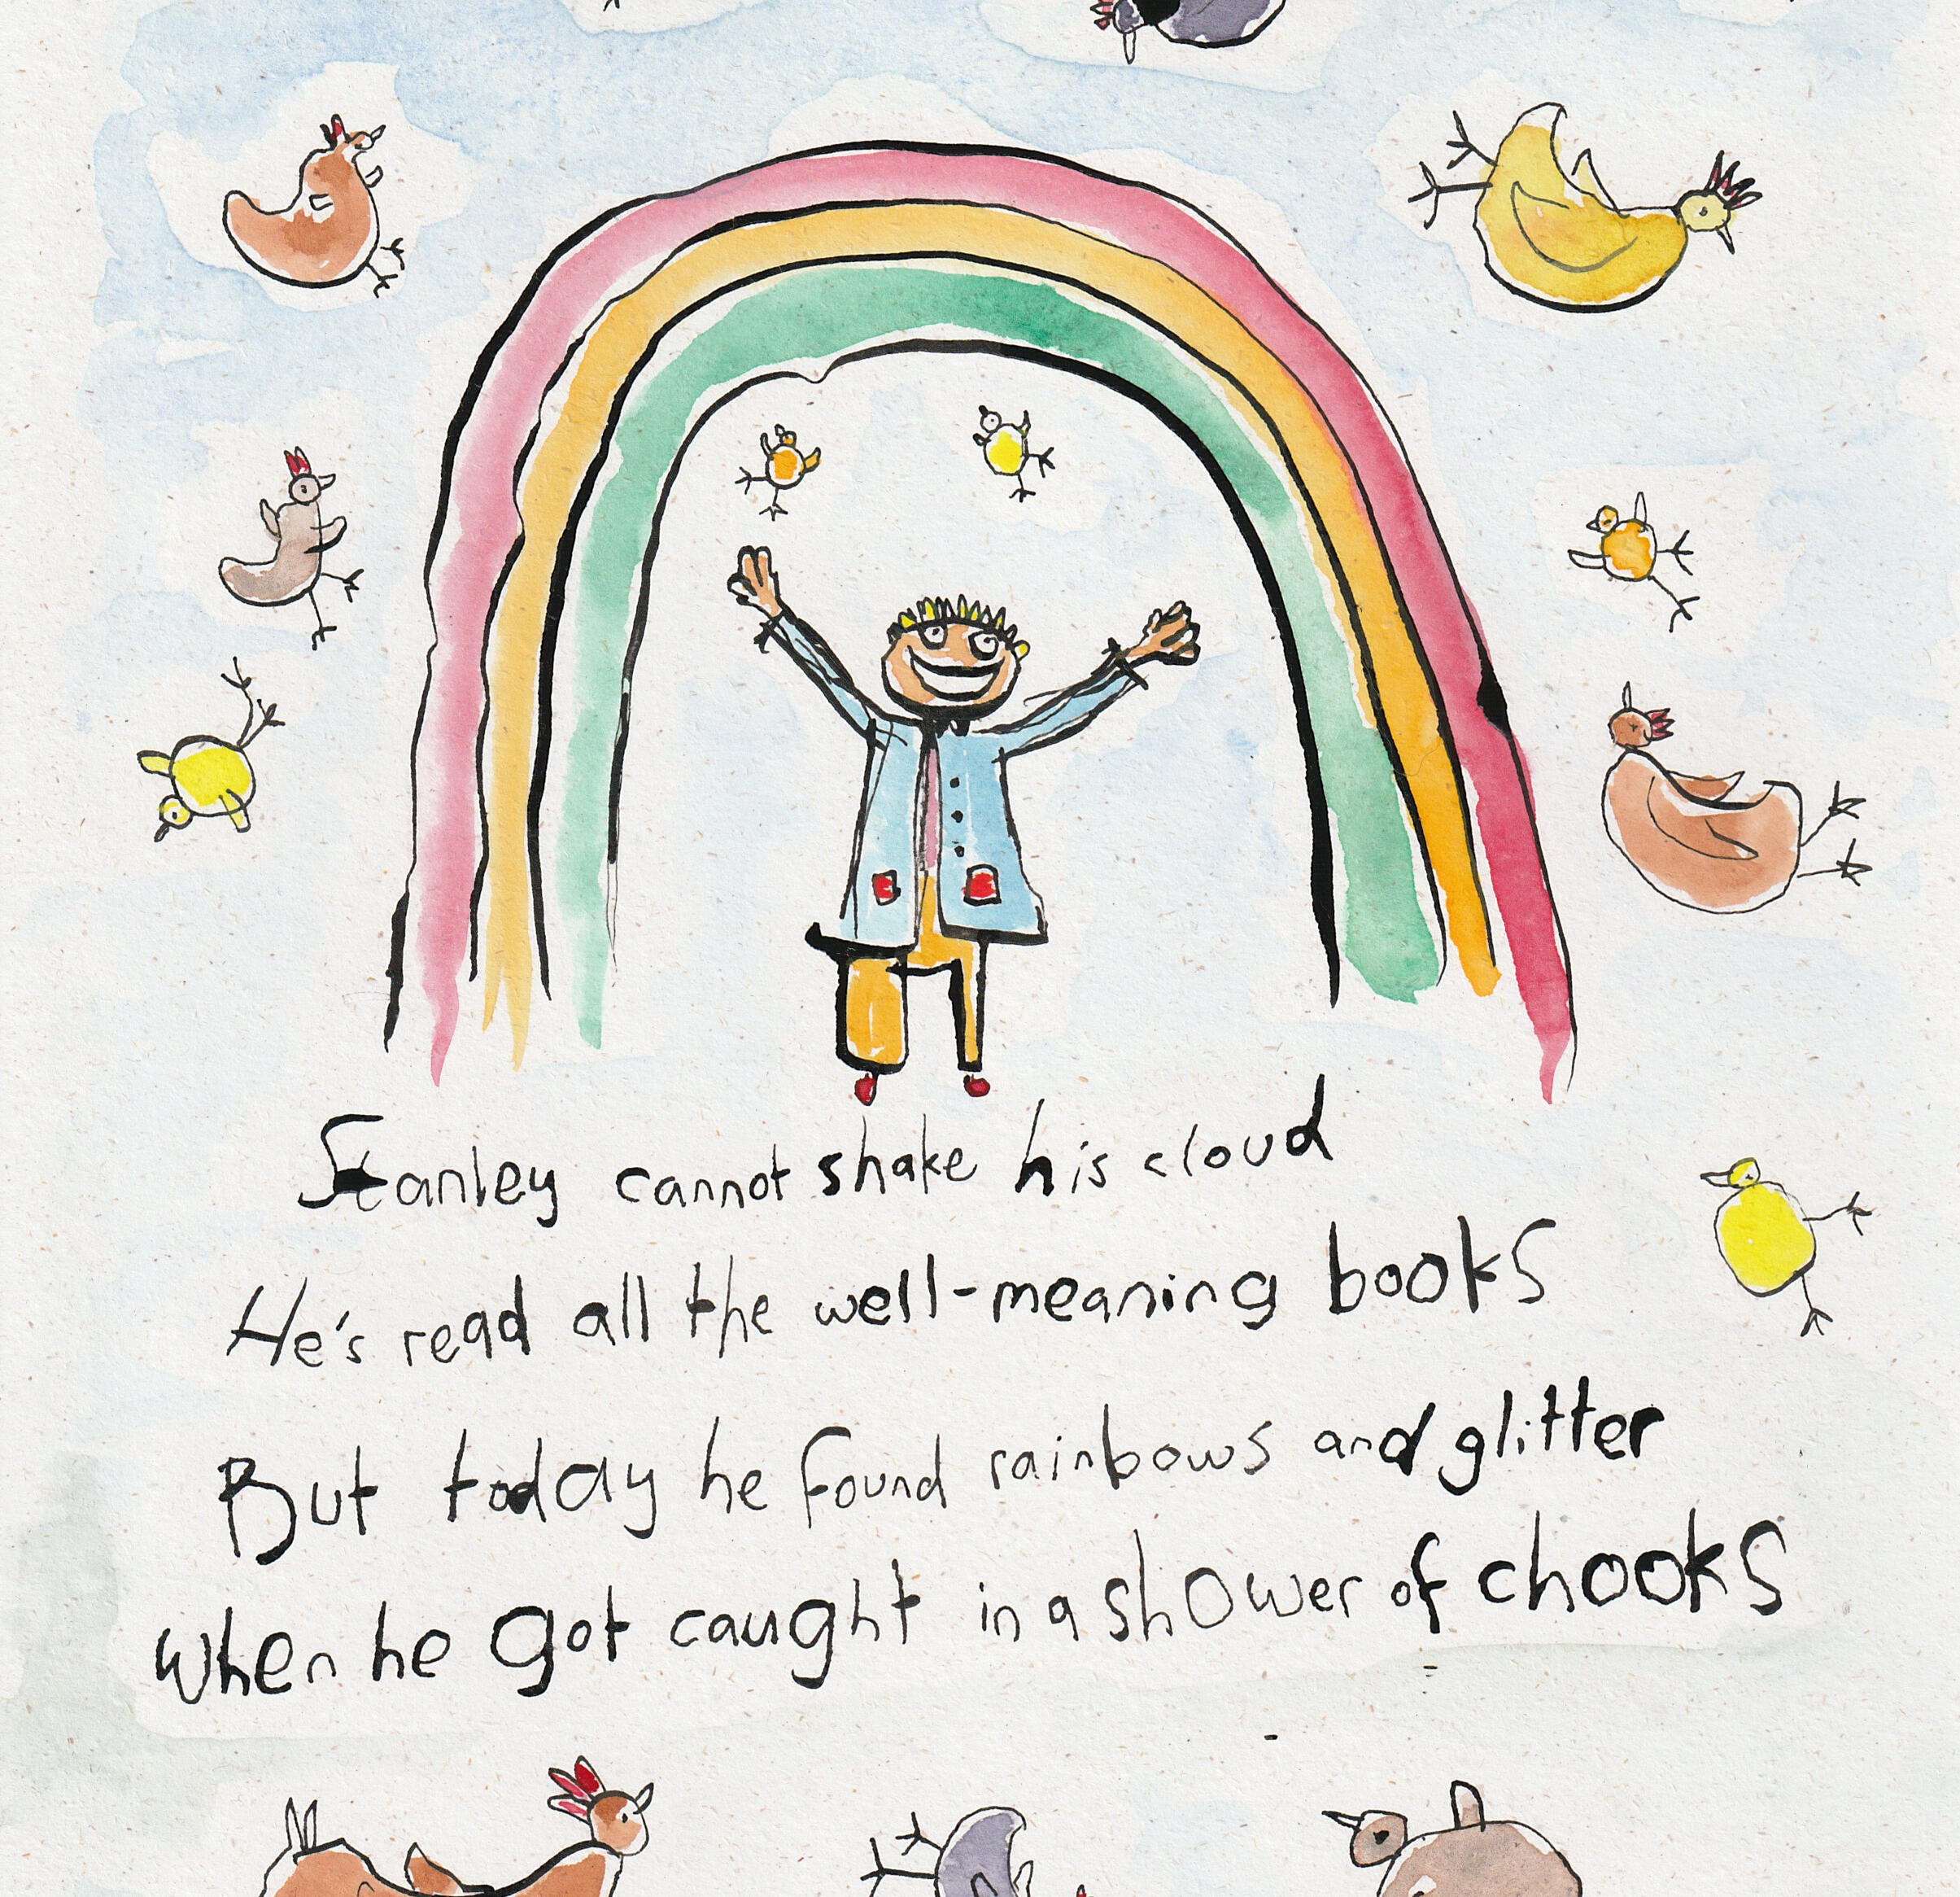 Stanley cannot shake his cloud
He's read all the well-meaning books
But today he found rainbows and glitter
When he got caught in a shower of chooks